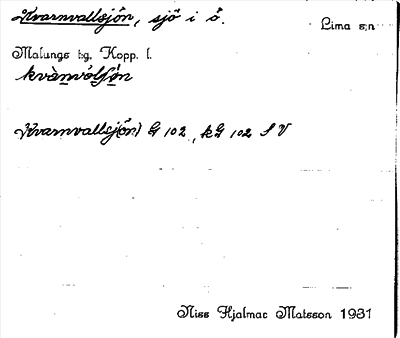 Kvarnvallsjön, sjö i ö. Lima s:n
Malungs t:g, Kopp. l.
kvànvól∫ö̀n
Kvarnvallsjön) G 102, kG 102 SV
Niss Hjalmar Matsson 1931